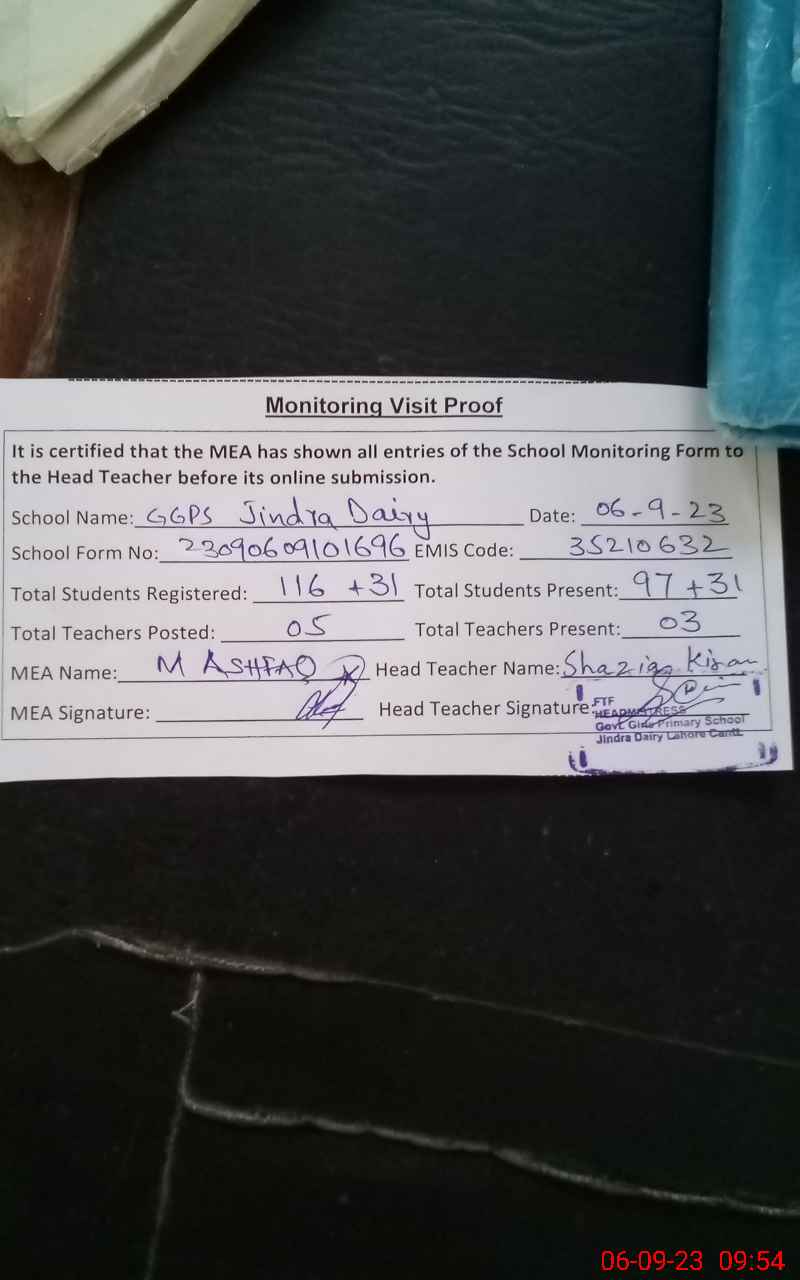 Monitoring Visit Proof
It is certified that the MEA has shown all entries of the School Monitoring Form to
the Head Teacher before its online submission.
School Name: GGPS Jindra Dairy Date: 06-9-23
School Form No: 23090609101696 EMIS Code: 35210632
Total Students Registered: 116 +31 Total Students Present: 97 +31
Total Teachers Posted: 05 Total Teachers Present: 03
MEA Name: M ASHFAQ Head Teacher Name: Shazia Kiran
MEA Signature: Head Teacher Signature:
FTF
HEADMISTRESS
Govt. Girls Primary School
Jindra Dairy Lahore Cantt.
06-09-23 09:54